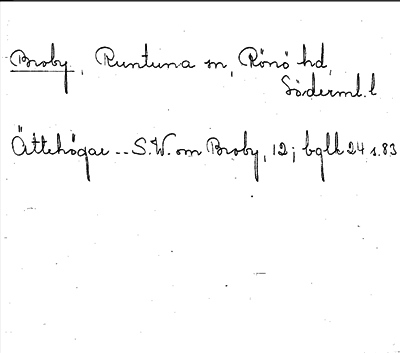 Broby, Runtuna sn, Rönö hd,
Söderml. l
Ättehögar -- S.W. om Broby, 12; bglk 24 s. 83